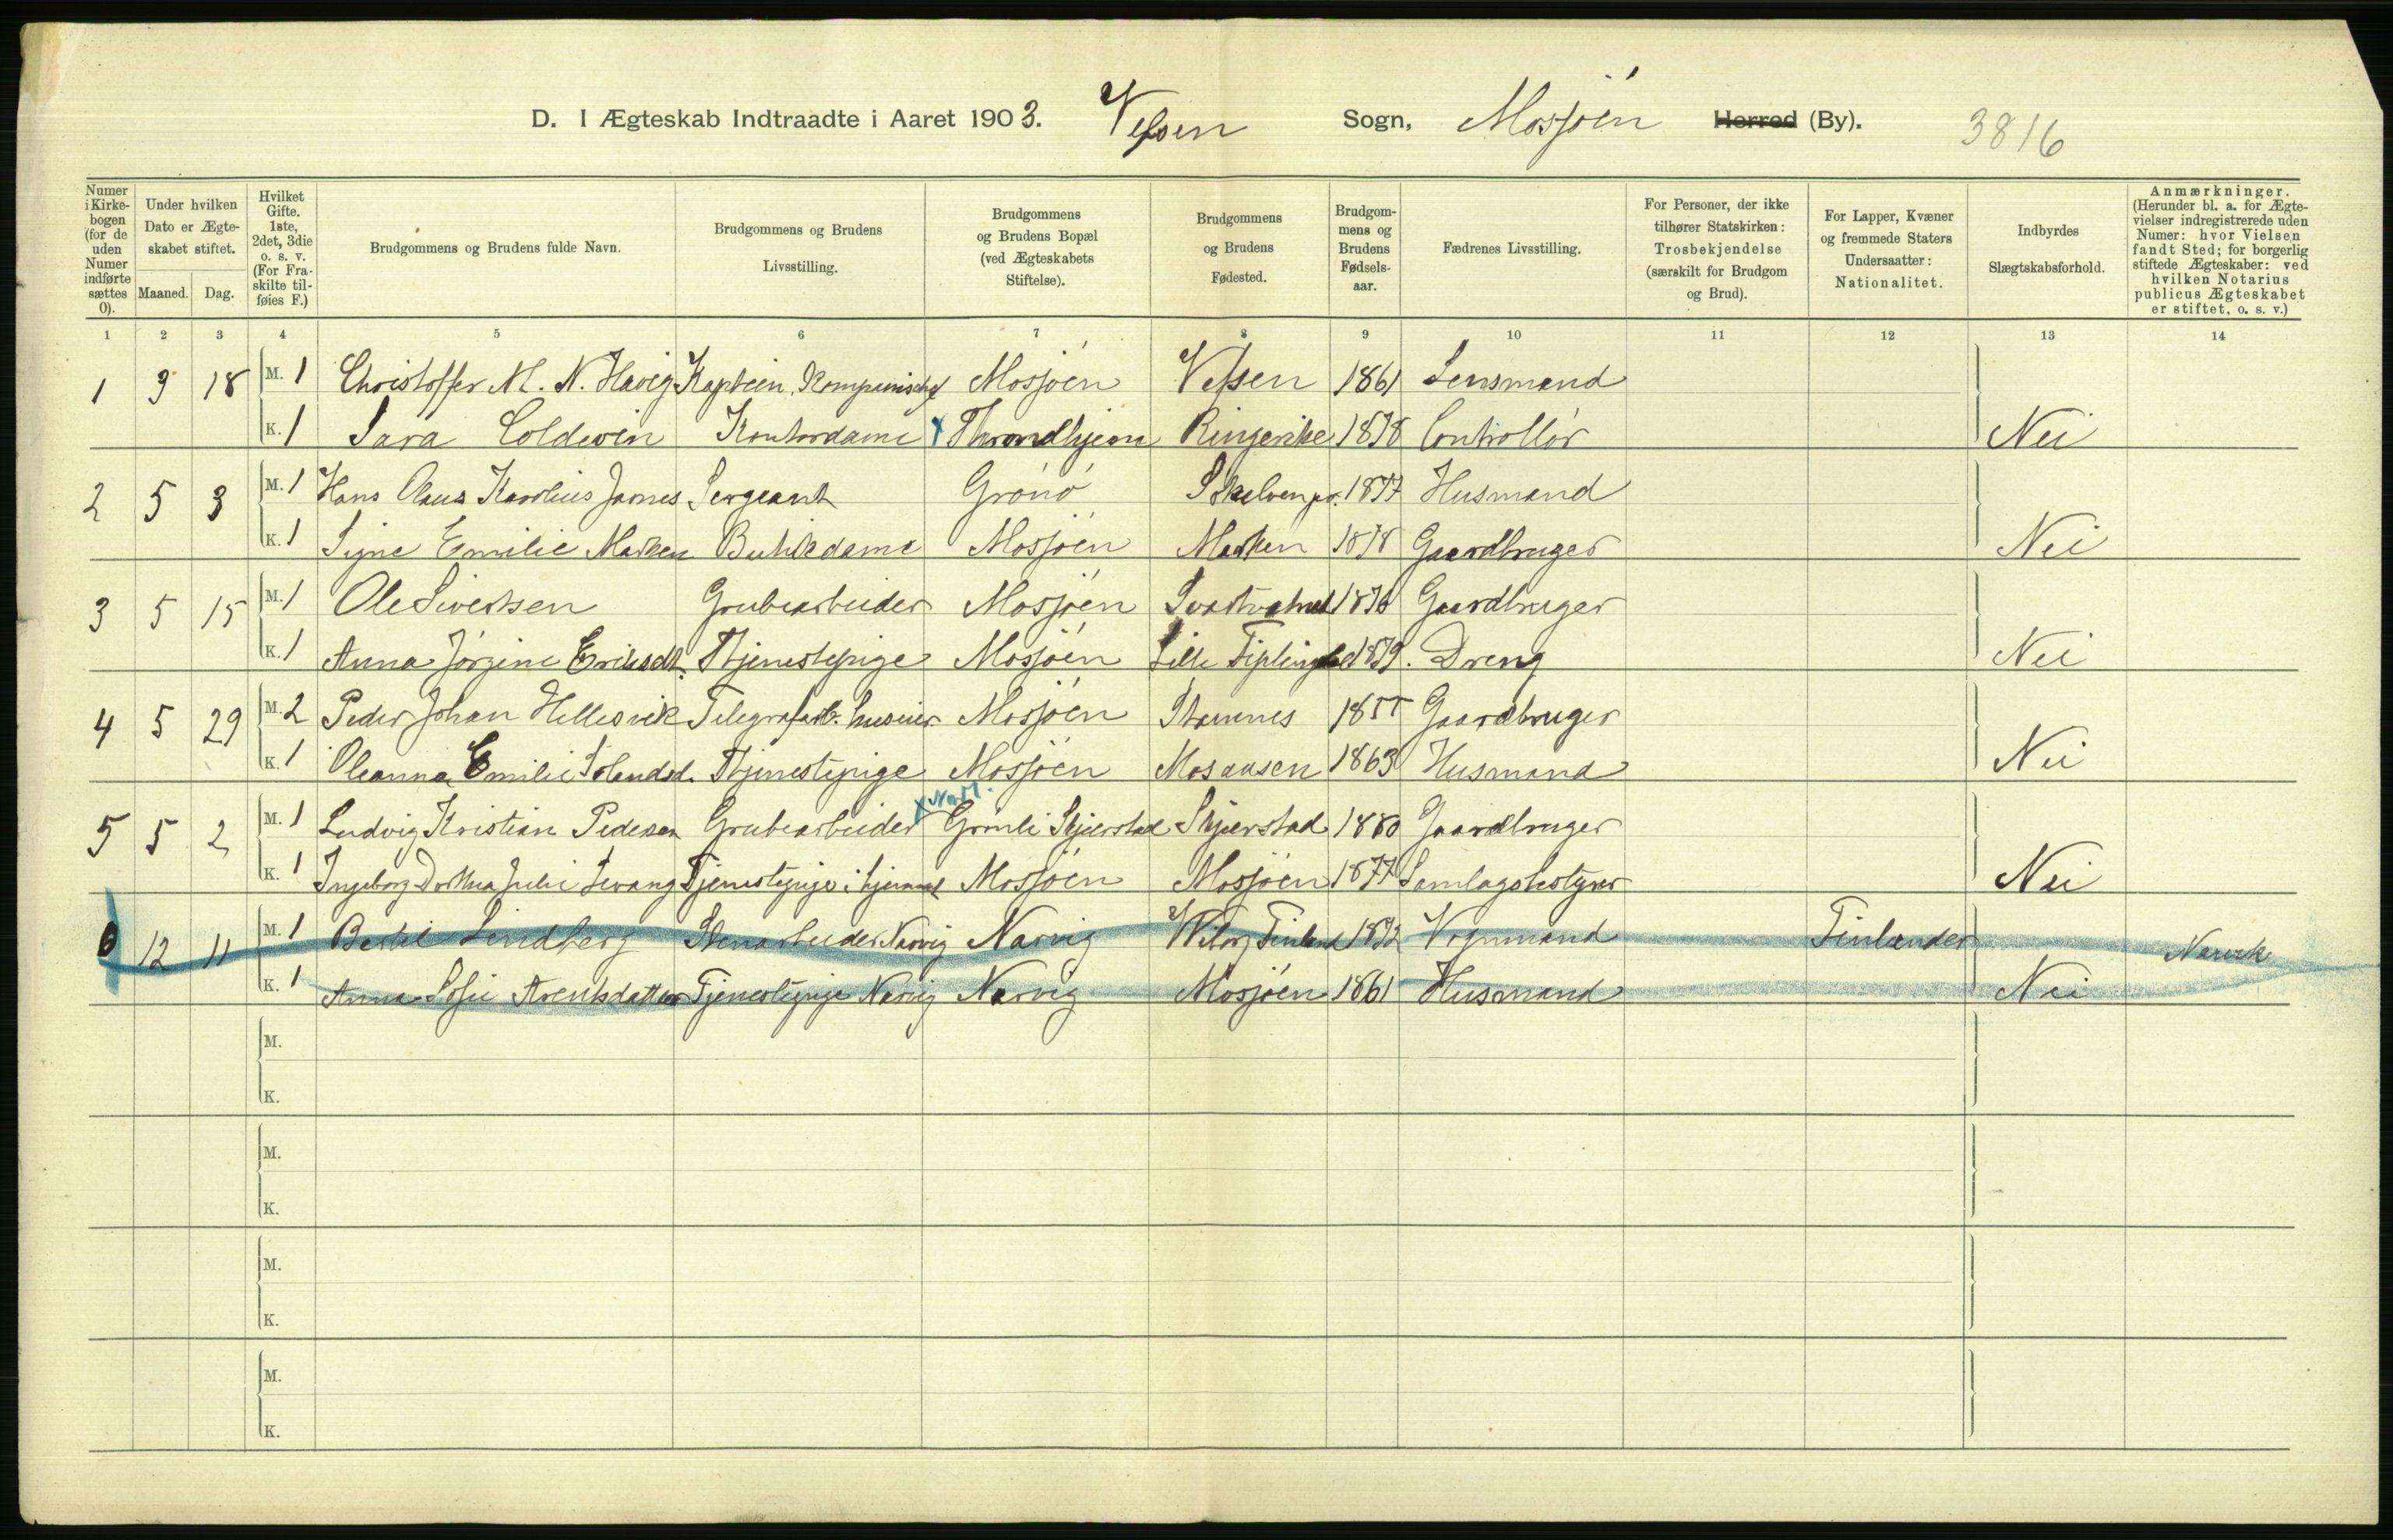 D. I Ægteskab Indtraadte i Aaret 1903. Vefsen Sogn, Mosjøen Herred (By). 3816
Numer i Kirkebogen (for de uden Numer indførte sættes 0).
Under hvilken Dato er Ægteskabet stiftet.
Maaned. Dag.
Hvilket Gifte. 1ste, 2det, 3die o. s. v. (For Fraskilte tilføies F.)
Brudgommens og Brudens fulde Navn.
Brudgommens og Brudens Livsstilling.
Brudgommens og Brudens Bopæl (ved Ægteskabets Stiftelse).
Brudgommens og Brudens Fødested.
Brudgommens og Brudens Fødselsaar.
Fædrenes Livsstilling.
For Personer, der ikke tilhører Statskirken: Trosbekjendelse (særskilt for Brudgom og Brud).
For Lapper, Kvæner og fremmede Staters Undersaatter: Nationalitet.
Indbyrdes Slægtskabsforhold.
Anmærkninger. (Herunder bl. a. for Ægtevielser indregistrerede uden Numer: hvor Vielsen fandt Sted; for borgerlig stiftede Ægteskaber: ved hvilken Notarius publicus Ægteskabet er stiftet, o. s. v.)
1 2 3 4 5 6 7 8 9 10 11 12 13 14
1 3 18 M. 1 Christoffer M. N. Havig Kaptein, Kompanischef Mosjøen Vefsen 1861 Lensmand
K. 1 Sara Coldevin Kontordame x Throndhjem Ringerike 1878 Controllør Nei
2 5 3 M. 1 Hans Olaus Karolius James Sergeant Grønø 1877 Husmand
K. 1 Signe Emilie Marken Butikdame Mosjøen Marken 1878 Gaardbruger Nei
3 5 15 M. 1 Ole Sivertsen Grubearbeider Mosjøen Svartvatnet Gaardbruger
K. 1 Anna Jørgine Eriksdt. Thjenestepige Mosjøen Lille 1879. Dreng Nei
4 5 29 M. 2 Peder Johan Hellesvik Telegrafarb. huseier Mosjøen Stamnes 1855 Gaardbruger
K. 1 Oleanna Emilie Thjenestepige Mosjøen Mosausen 1863 Husmand Nei
x Nordl.
5 5 2 M. 1 Ludvig Kristian Pedersen Grubearbeider Grønli Skjerstad Skjerstad 1880 Gaardbruger
K. 1 Ingeborg Dorthea Julie Tjenestepige i hjemmet Mosjøen Mosjøen 1877 Samlagsbestyrer Nei
6 12 11 M. 1 Bertel Lindberg Stenarbeider Narvig Narvig Wiborg Finland 1872 Vognmand Finlænder Narvik
K. 1 Anna Sofie Arentsdatter Tjenestepige Narvig Narvig Mosjøen 1861 Husmand Nei
M.
K.
M.
K.
M.
K.
M.
K.